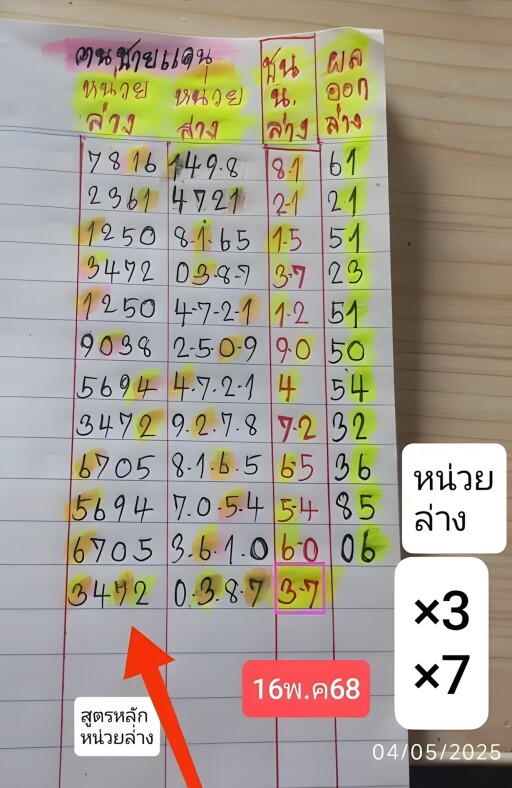 ฅนชายแดน
หน่วย ล่าง
หน่วย ล่าง
ชน น. ล่าง
ผล ออก ล่าง
7816 149.8 8-1 61
2361 4721 2-1 21
1250 8-1-65 1-5 51
3472 03-8-7 3-7 23
1250 4-7-2-1 1-2 51
9038 2-5-0-9 9-0 50
5694 4.7.2-1 4 54
3472 9.2.7.8 7-2 32
6705 8.1.6.5 6-5 36
5694 7.0.5.4 5-4 85
6705 3.6.1.0 6-0 06
3472 0.3.8.7 3-7
หน่วย
ล่าง
×3
×7
16พ.ค68
สูตรหลัก
หน่วยล่าง
04/05/2025